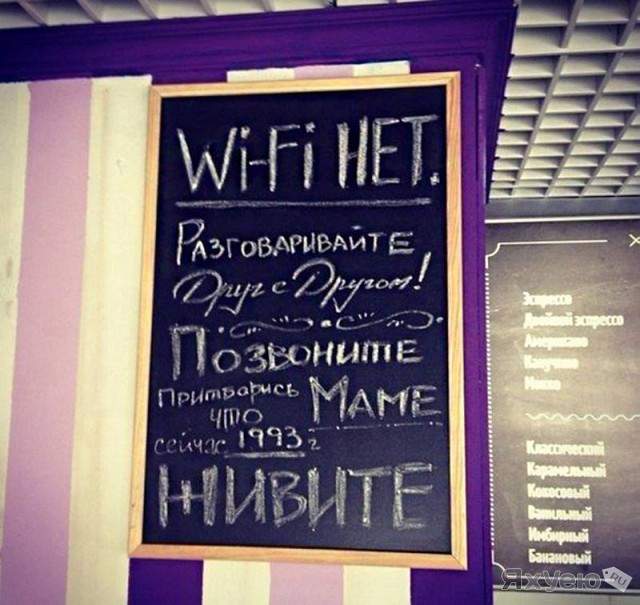 Wi-Fi НЕТ.
РАЗГОВАРИВАЙТЕ
Друг с Другом!
ПОЗВОНИТЕ
МАМЕ
Притворись
что
сейчас 1993 г
ЖИВИТЕ
Эспрессо
Двойной эспрессо
Американо
Капучино
Мокко
Классический
Карамельный
Кокосовый
Ванильный
Имбирный
Банановый
ЯхУею.RU